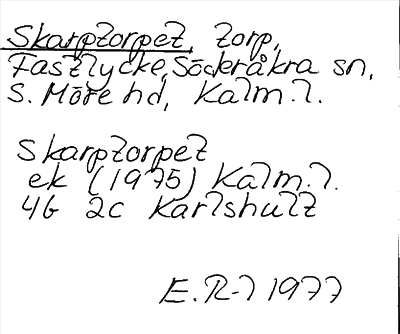 Skarptorpet, torp,
Fastlycke, Söderåkra sn,
S. Möre hd, Kalm. l.
Skarptorpet
ek (1975) Kalm. l.
4G 2c Karlshult
E. R-l 1977